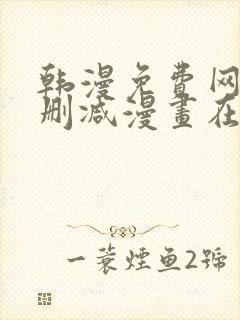 韩漫免费网
删减漫畫在
一蓑煙鱼2號